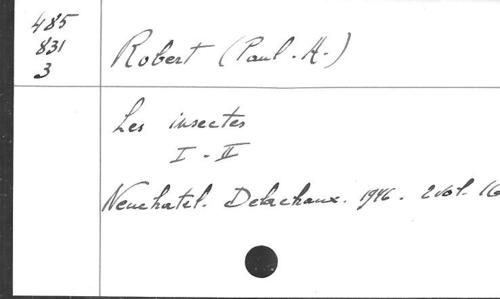 485
831
3
Robert (Paul. A.)
Les insectes
I - II
Neuchatel. Delachaux. 1946. 2 vol. 16